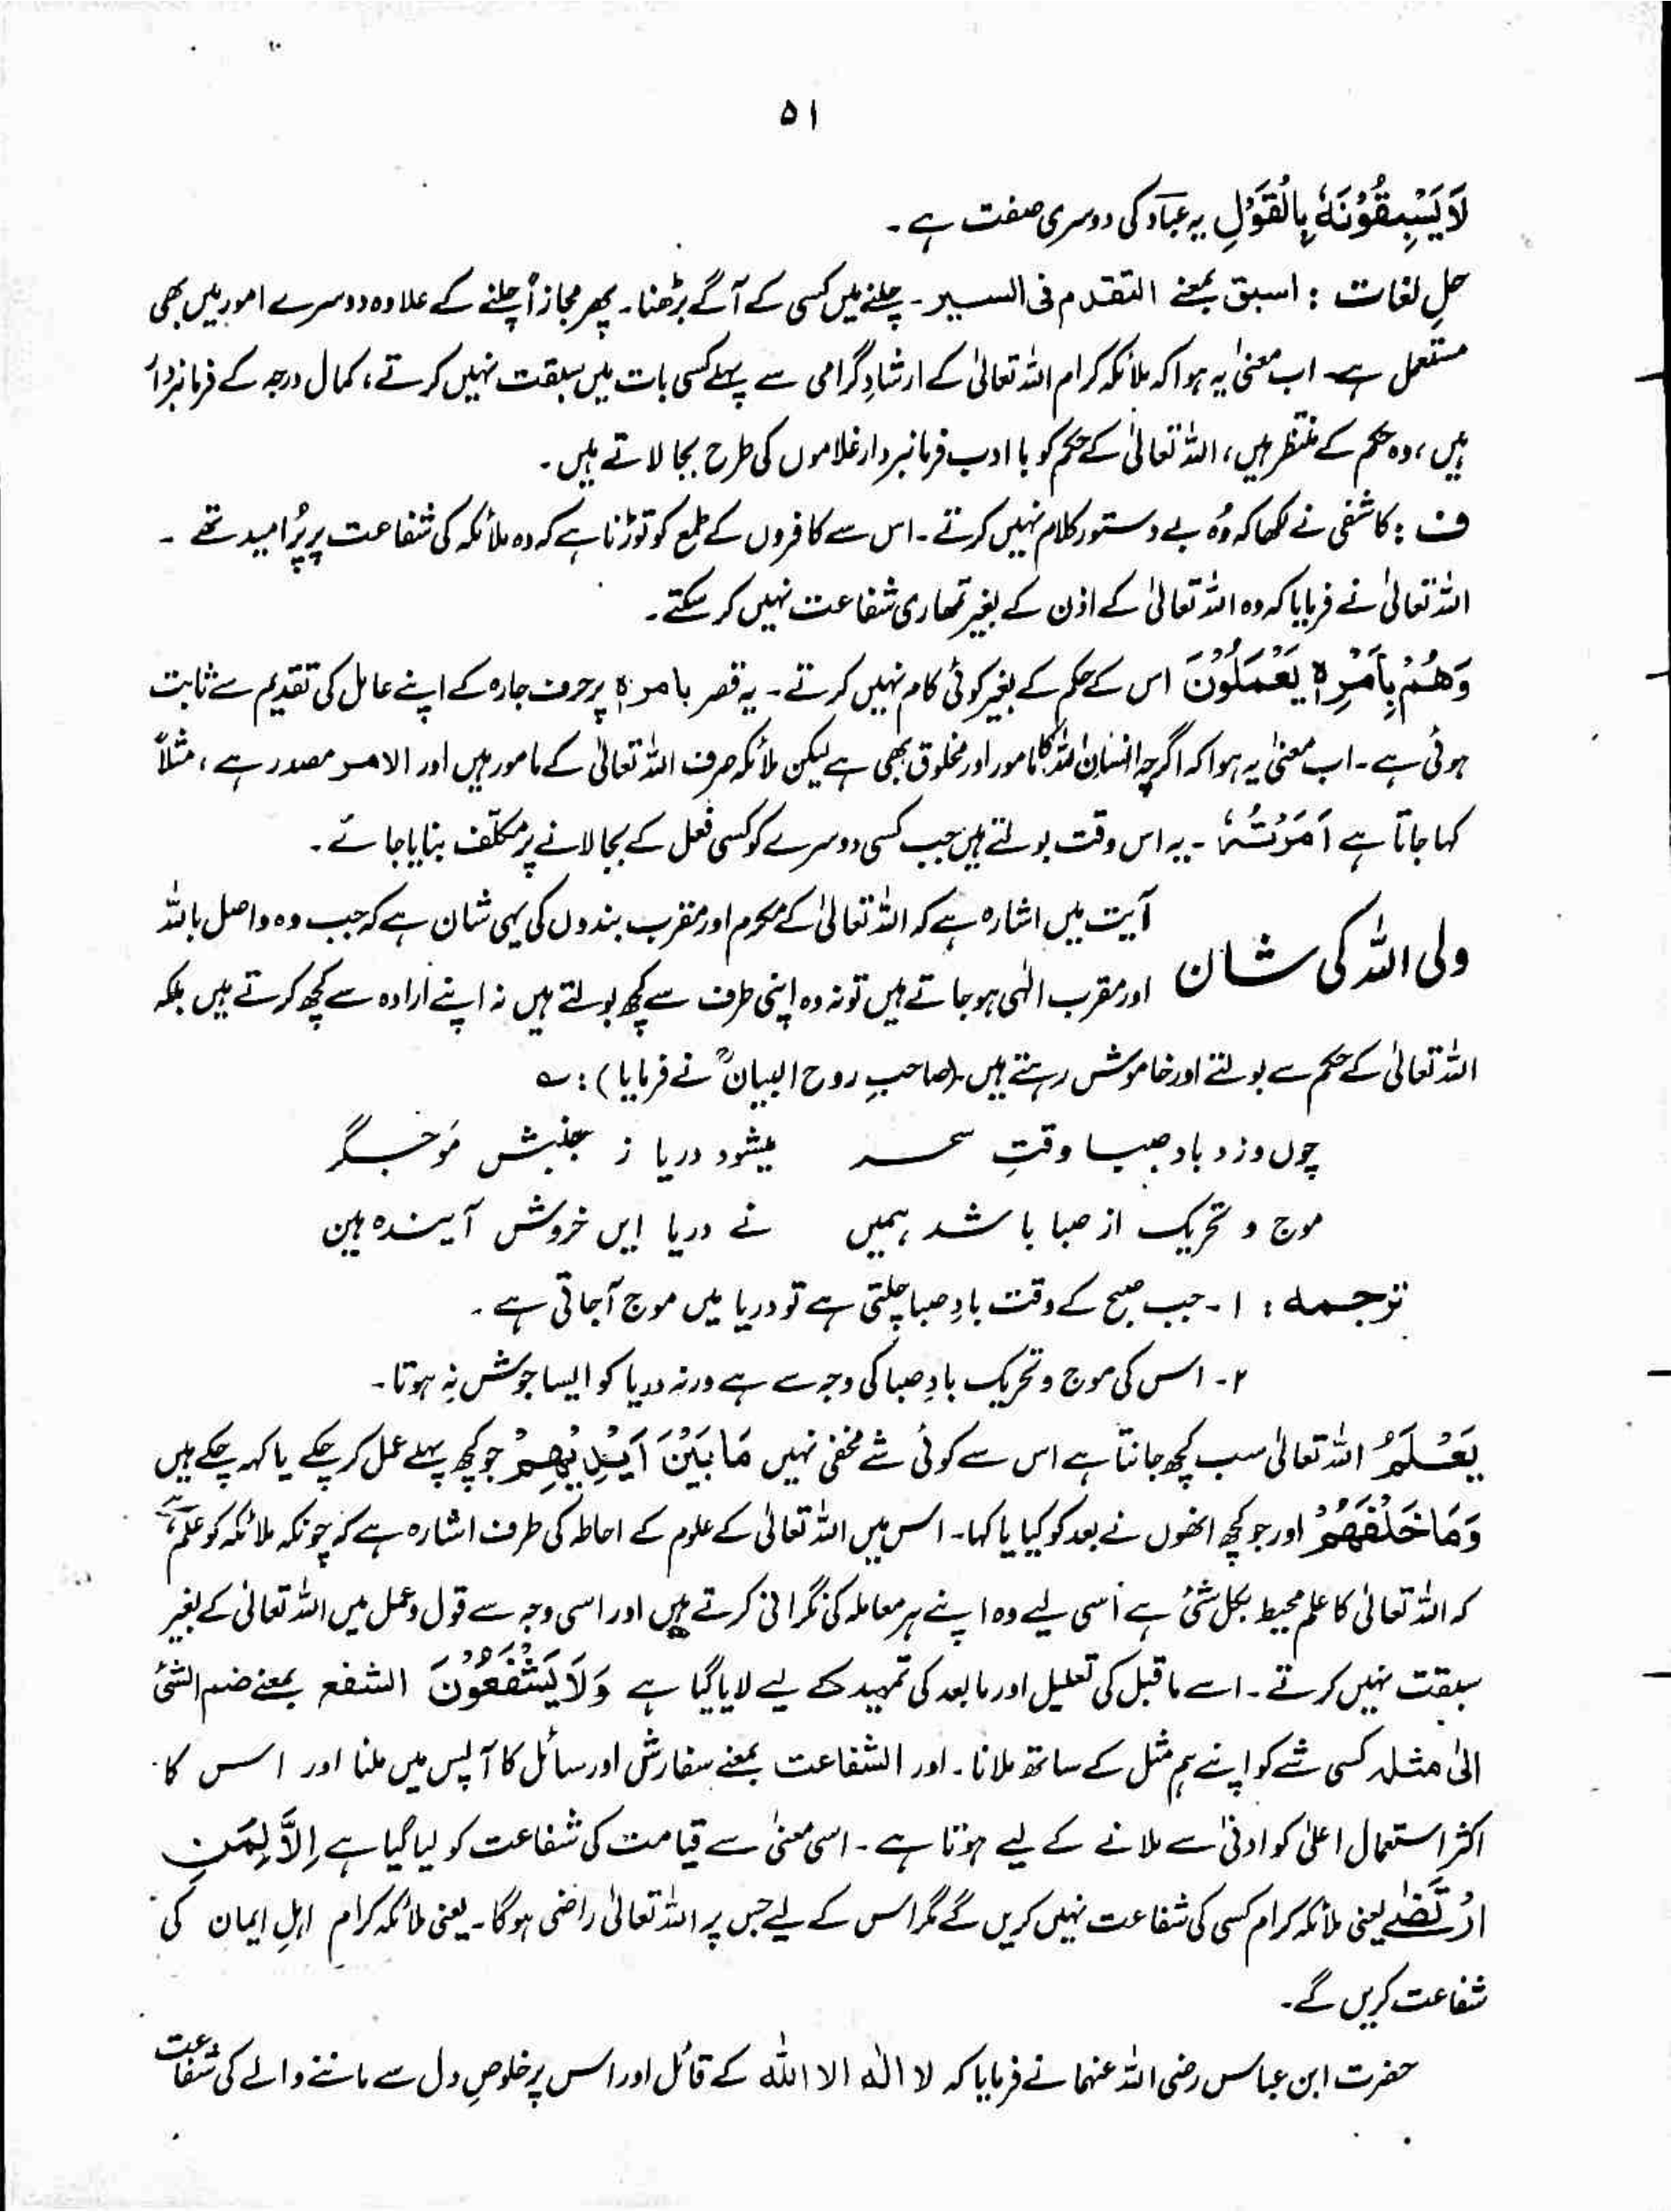 ۵۱
لَا یَسْبِقُوْنَهٗ بِالْقَوْلِ یہ عباد کی دوسری صفت ہے۔
حلِ لغات : اسبق بمعنے التقدم فی السیر۔ چلنے میں کسی کے آگے بڑھنا۔ پھر مجازاً چلنے کے علاوہ دوسرے امور میں بھی
مستعمل ہے۔ اب معنیٰ یہ ہوا کہ ملائکہ کرام اللہ تعالیٰ کے ارشادِ گرامی سے پہلے کسی بات میں سبقت نہیں کرتے، کمال درجہ کے فرمانبردار
ہیں، وہ حکم کے منتظر ہیں، اللہ تعالیٰ کے حکم کو با ادب فرمانبردار غلاموں کی طرح بجا لاتے ہیں۔
ف : کاشفی نے لکھا کہ وُہ بے دستور کلام نہیں کرتے۔ اس سے کافروں کے طمع کو توڑنا ہے کہ وہ ملائکہ کی شفاعت پر پُرامید تھے ۔
اللہ تعالیٰ نے فرمایا کہ وہ اللہ تعالیٰ کے اذن کے بغیر تمھاری شفاعت نہیں کر سکتے۔
وَهُمْ بِاَمْرِهٖ یَعْمَلُوْنَ اس کے حکم کے بغیر کوئی کام نہیں کرتے۔ یہ قصر بامرہٖ پر حرف جارہ کے اپنے عامل کی تقدیم سے ثابت
ہوئی ہے۔ اب معنیٰ یہ ہوا کہ اگرچہ انسان اللہ کا مامور اور مخلوق بھی ہے لیکن ملائکہ صرف اللہ تعالیٰ کے مامور ہیں اور الامر مصدر ہے، مثلاً
کہا جاتا ہے اَمَرْتُہٗ ۔ یہ اس وقت بولتے ہیں جب کسی دوسرے کو کسی فعل کے بجا لانے پر مکلّف بنایا جائے۔
ولی اللہ کی شان
آیت میں اشارہ ہے کہ اللہ تعالیٰ کے مکرم اور مقرب بندوں کی یہی شان ہے کہ جب وہ واصل باللہ
اور مقرب الٰہی ہو جاتے ہیں تو نہ وہ اپنی طرف سے کچھ بولتے ہیں نہ اپنے ارادہ سے کچھ کرتے ہیں بلکہ
اللہ تعالیٰ کے حکم سے بولتے اور خاموش رہتے ہیں۔ (صاحبِ روح البیانؒ نے فرمایا) : ؎
چوں وزد باد صبا وقتِ سحر میشود دریا ز جنبش مَوجگر
موج و تحریک از صبا باشد ہمیں نے دریا ایں خروش آیندہ بین
ترجمہ : ۱۔ جب صبح کے وقت بادِ صبا چلتی ہے تو دریا میں موج آجاتی ہے۔
۲۔ اس کی موج و تحریک بادِ صبا کی وجہ سے ہے ورنہ دریا کو ایسا جوش نہ ہوتا۔
یَعْلَمُ اللہ تعالیٰ سب کچھ جانتا ہے اس سے کوئی شے مخفی نہیں مَا بَیْنَ اَیْدِیْهِمْ جو کچھ پہلے عمل کر چکے یا کہہ چکے ہیں
وَمَا خَلْفَهُمْ اور جو کچھ انھوں نے بعد کو کیا یا کہا۔ اس میں اللہ تعالیٰ کے علوم کے احاطہ کی طرف اشارہ ہے کہ چونکہ ملائکہ کو علم ہے
کہ اللہ تعالیٰ کا علم محیط بکل شئ ہے اسی لیے وہ اپنے ہر معاملہ کی نگرانی کرتے ہیں اور اسی وجہ سے قول و عمل میں اللہ تعالیٰ کے بغیر
سبقت نہیں کرتے۔ اسے ماقبل کی تعلیل اور مابعد کی تمہید کے لیے لایا گیا ہے وَلَا یَشْفَعُوْنَ الشفع بمعنے ضم الشئ
الیٰ مثلہ کسی شے کو اپنے ہم مثل کے ساتھ ملانا۔ اور الشفاعت بمعنے سفارش اور سائل کا آپس میں ملنا اور اس کا
اکثر استعمال اعلیٰ کو ادنیٰ سے ملانے کے لیے ہوتا ہے۔ اسی معنیٰ سے قیامت کی شفاعت کو لیا گیا ہے اِلَّا لِمَنِ
ارْتَضٰے یعنی ملائکہ کرام کسی کی شفاعت نہیں کریں گے مگر اس کے لیے جس پر اللہ تعالیٰ راضی ہوگا۔ یعنی ملائکہ کرام اہلِ ایمان کی
شفاعت کریں گے۔
حضرت ابن عباس رضی اللہ عنہما نے فرمایا کہ لا الٰہ الا اللہ کے قائل اور اس پر خلوصِ دل سے ماننے والے کی شفاعت